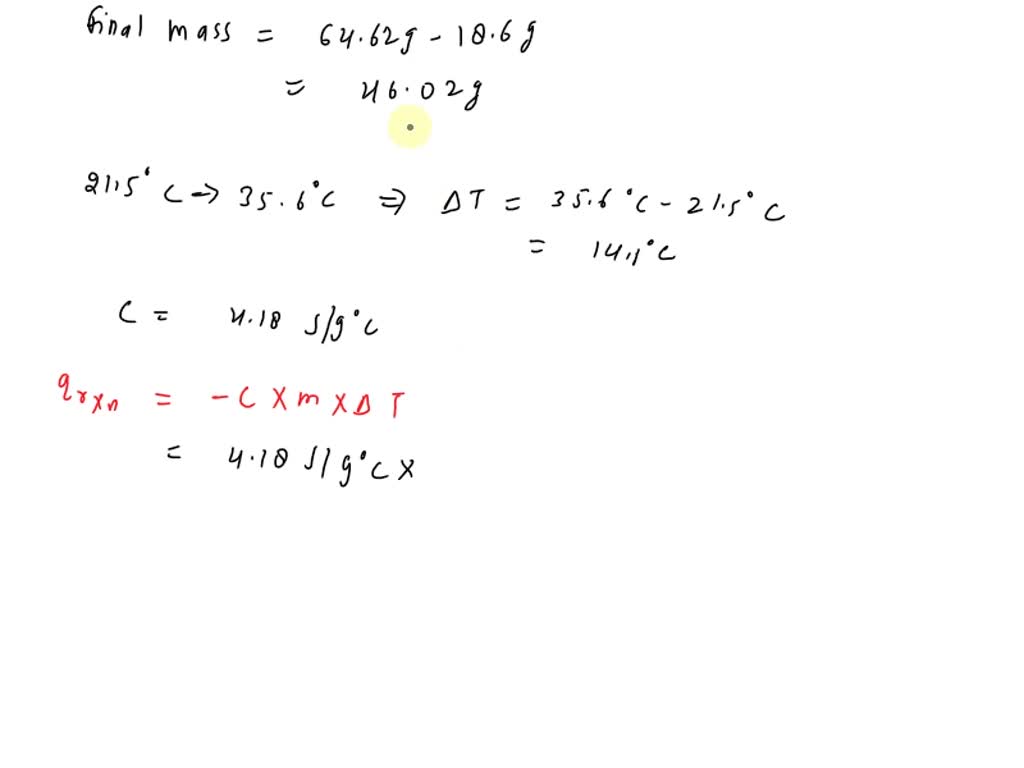 final mass = 64.62g - 18.6g
= 46.02g
21.5°C → 35.6°C ⇒ ΔT = 35.6°C - 21.5°C
= 14.1°C
C = 4.18 J/g°C
qrxn = -C X m X Δ T
= 4.18 J/g°C X